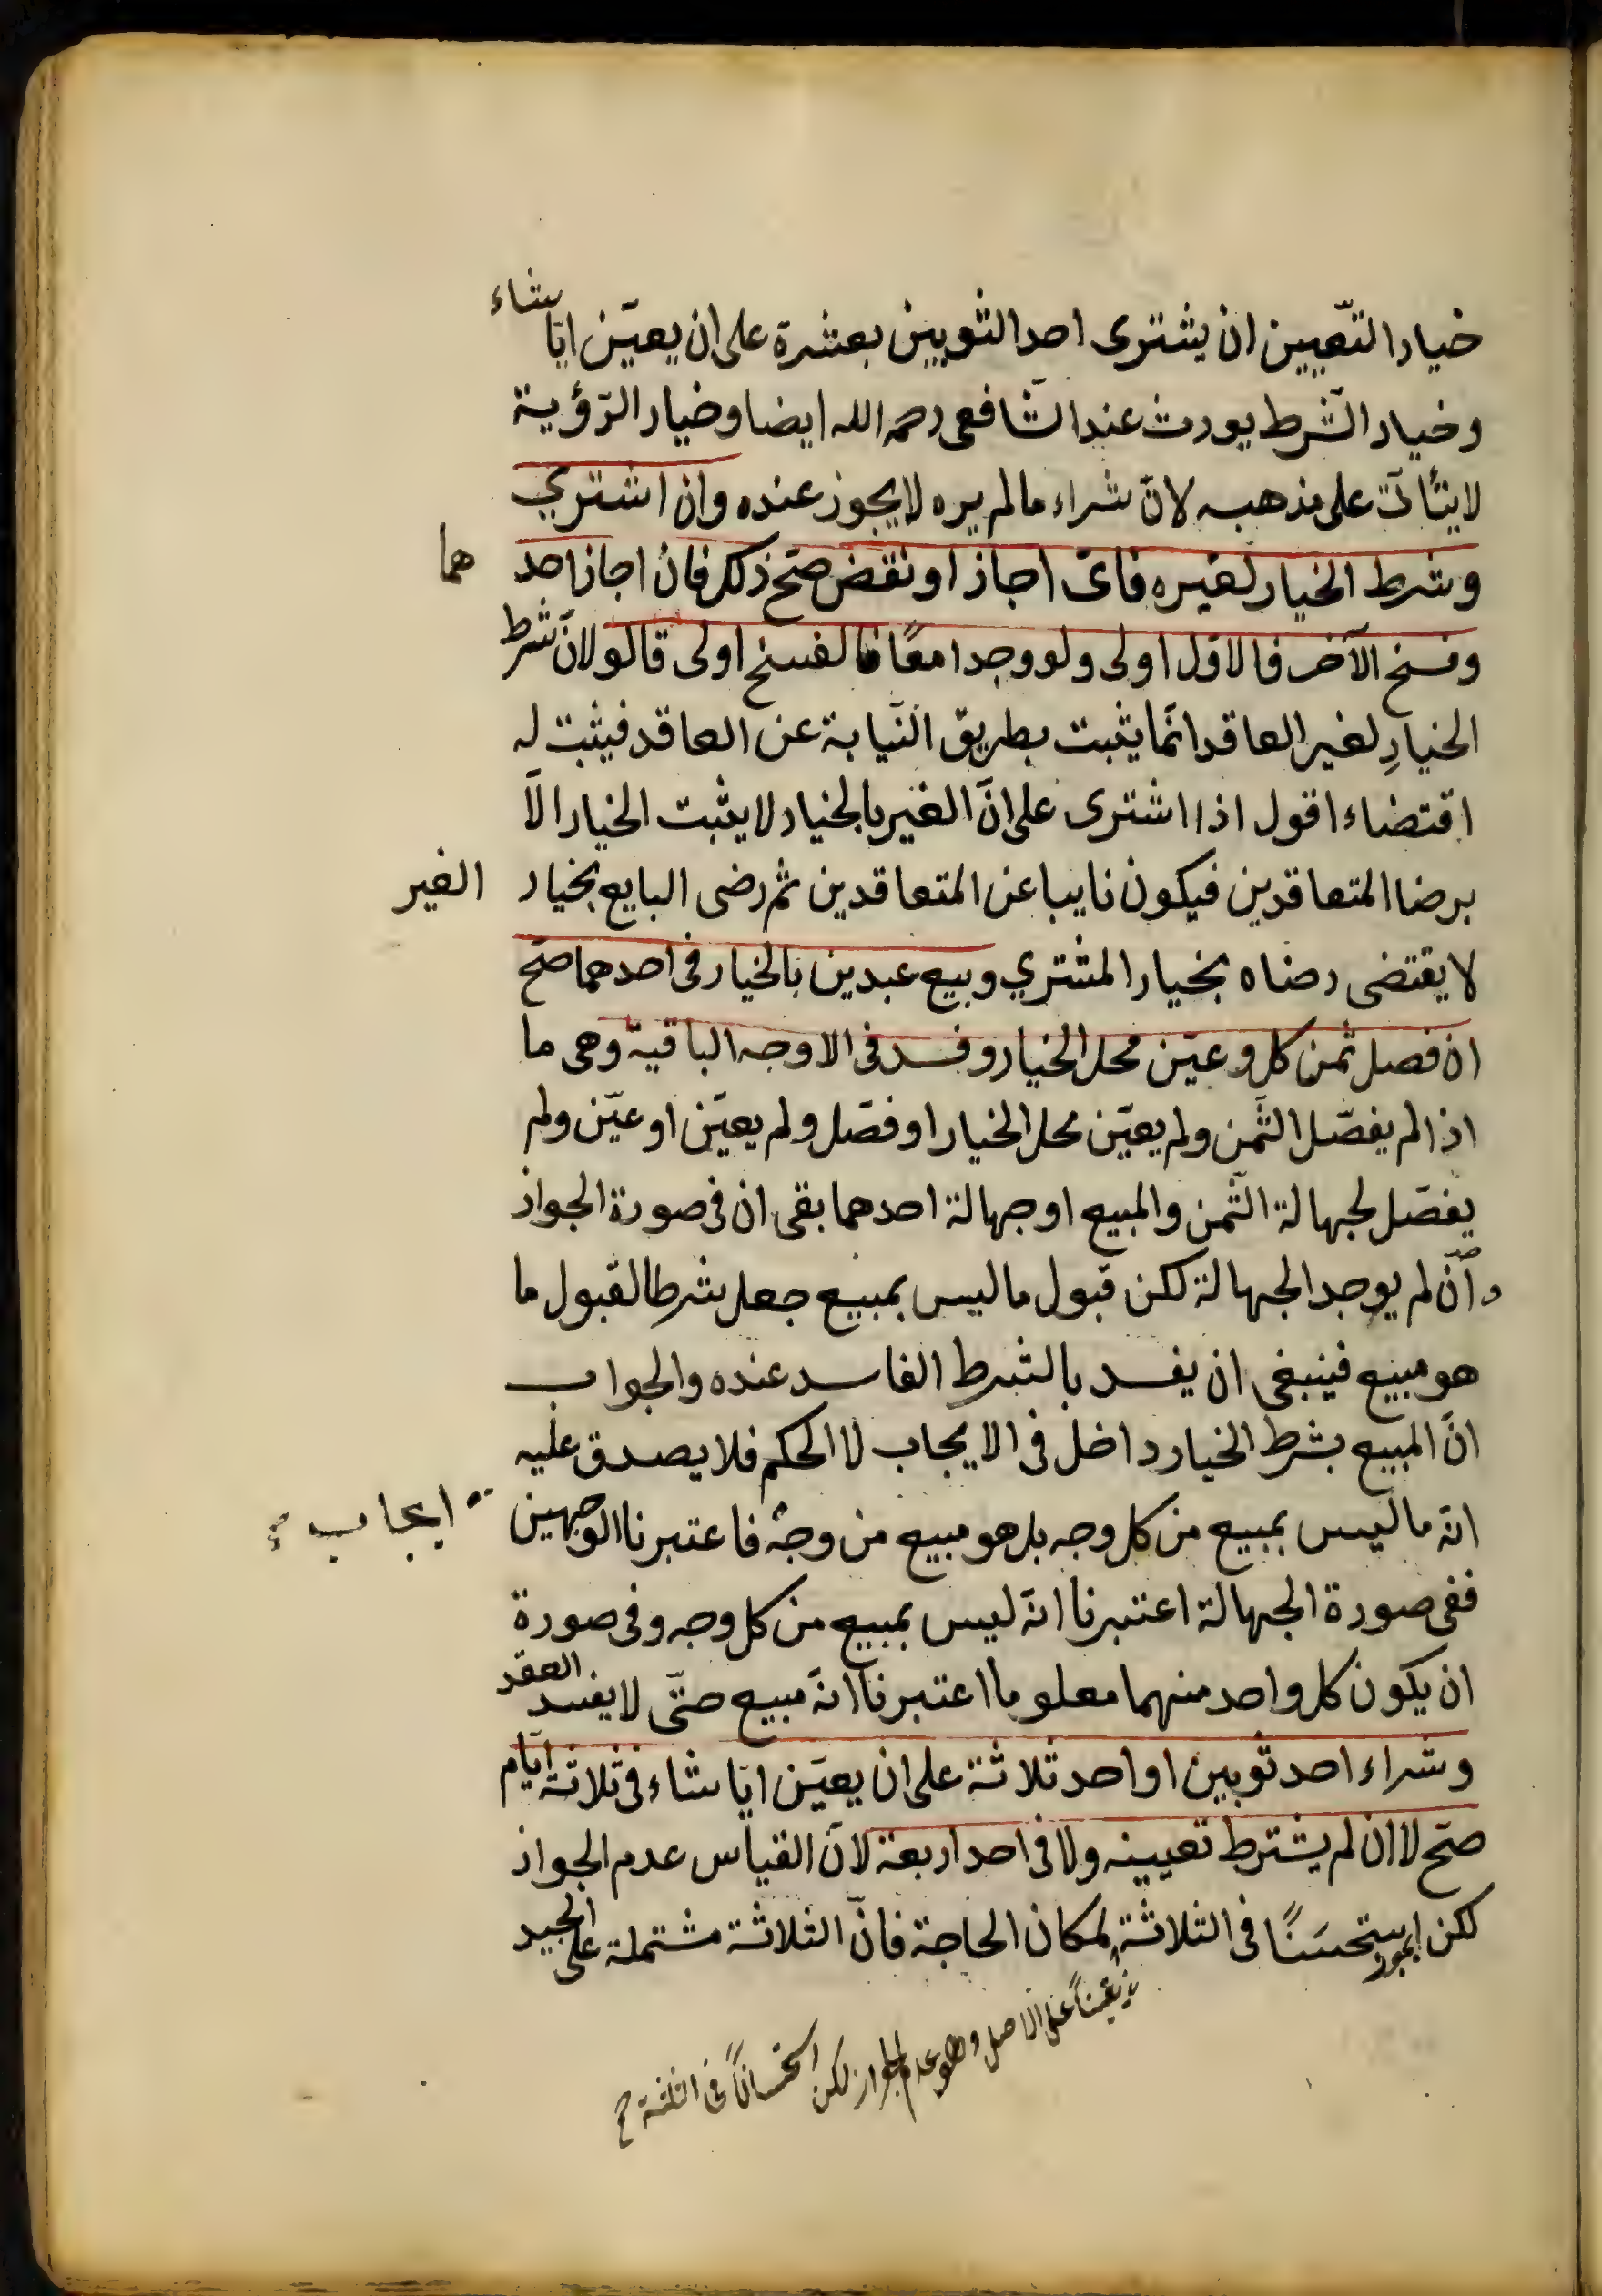 خيار التّعيين ان يشترى احد الثوبين بعشرة على ان يعيّن ايّا شاء
وخيار الشّرط يورث عند الشافعى رحمه الله ايضا وخيار الرّؤية
لا يتأتّى على مذهبه لانّ شراء ما لم يره لا يجوز عنده وان اشتري
وشرط الخيار لغيره فاىّ اجاز او نقض صحّ ذلك فان اجاز احد هما
وفسخ الآخر فالاوّل اولى ولو وجدا معًا فالفسخ اولى قالو لانّ شرط
الخيارِ لغير العاقد انّما يثبت بطريق النّيابة عن العاقد فيثبت له
اقتضاء اقول اذا اشترى على انّ الغير بالخيار لا يثبت الخيار الّا
برضا المتعاقدين فيكون نايبا عن المتعاقدين ثم رضى البايع بخيار الغير
لا يقتضى رضاه بخيار المشتري وبيع عبدين بالخيار فى احدهما صحّ
ان فصل ثمن كل وعيّن محل الخيار وفسد فى الاوجه الباقية وهى ما
اذا لم يفصّل الثّمن ولم يعيّن محل الخيار او فصّل ولم يعيّن او عيّن ولم
يفصّل لجهالة الثّمن والمبيع او جهالة احدهما بقى ان فى صورة الجواز
وانّ لم يوجد الجهالة لكن قبول ما ليس بمبيع جعل شرطا لقبول ما
هو مبيع فينبغى ان يفسد بالشرط الفاسد عنده والجواب
انّ المبيع بشرط الخيار داخل فى الايجاب لا الحكم فلا يصدق عليه
انّه ما ليس بمبيع من كل وجه بل هو مبيع من وجه فاعتبرنا الوجهين
ايجاب
ففى صورة الجهالة اعتبرنا انّه ليس بمبيع من كل وجه وفى صورة
ان يكون كل واحد منهما معلوما اعتبرنا انّه مبيع حتّى لا يفسد العقد
وشراء احد ثوبين او احد ثلاثة على ان يعيّن ايّا شاء فى ثلاثة ايّام
صحّ لا ان لم يشترط تعيينه ولا فى احد اربعة لانّ القياس عدم الجواز
لكن يستحسنًا فى الثلاثة لمكان الحاجة فانّ الثلاثة مشتملة على الجيد
على الاصل وهو عدم الجواز لكن استحسانًا فى الثلثة صح